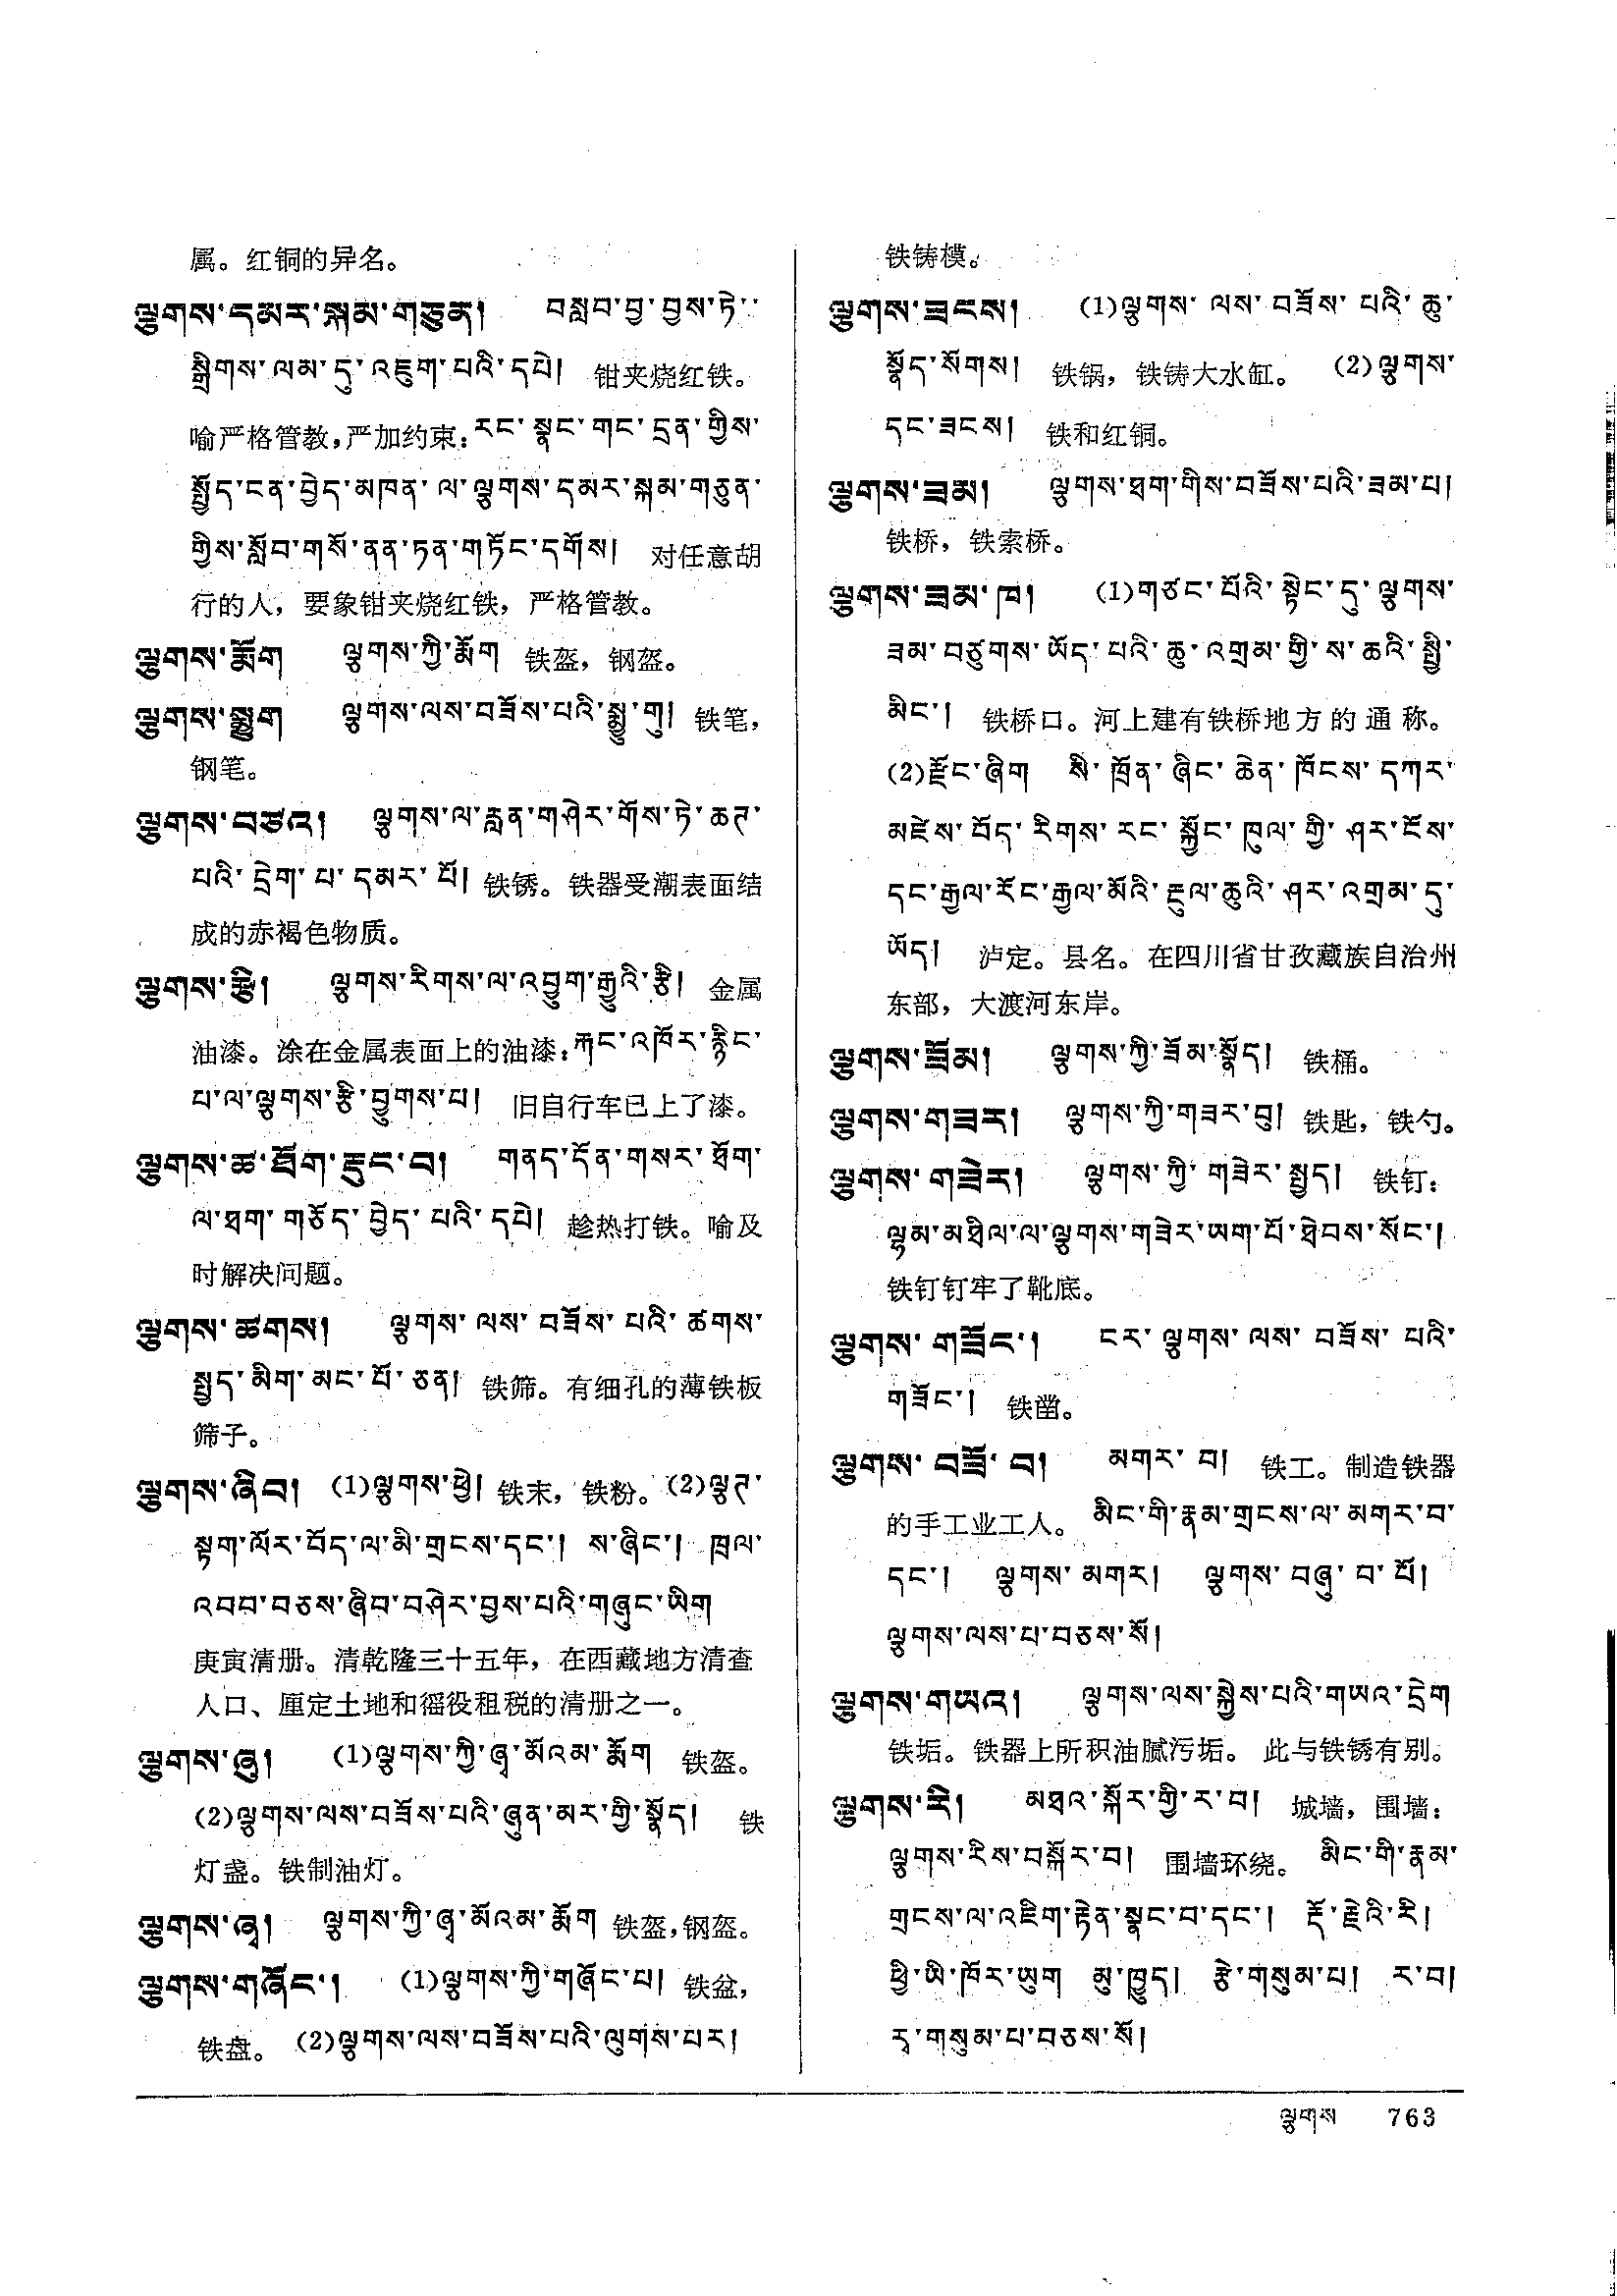 属。红铜的异名。
ལྕགས་དམར་སྐམ་གཅུན། བསླབ་བྱ་བྱས་ཏེ་
སྒྲིགས་ལམ་དུ་འཇུག་པའི་དཔེ། 钳夹烧红铁。
喻严格管教,严加约束:རང་སྣང་གང་དྲན་གྱིས་
སྤྱོད་ངན་བྱེད་མཁན་ལ་ལྕགས་དམར་སྐམ་གཅུན་
གྱིས་སློབ་གསོ་ནན་ཏན་གཏོང་དགོས། 对任意胡
行的人，要象钳夹烧红铁，严格管教。
ལྕགས་རྨོག ལྕགས་ཀྱི་རྨོག 铁盔，钢盔。
ལྕགས་སྨྱུག ལྕགས་ལས་བཟོས་པའི་སྨྱུ་གུ། 铁笔，
钢笔。
ལྕགས་བཙའ། ལྕགས་ལ་རླན་གཤེར་གོས་ཏེ་ཆཊ་
པའི་དྲེག་པ་དམར་པོ། 铁锈。铁器受潮表面结
成的赤褐色物质。
ལྕགས་རྩི། ལྕགས་རིགས་ལ་འབྱུག་རྒྱུའི་རྩི། 金属
油漆。涂在金属表面上的油漆:རྐང་འཁོར་རྙིང་
པ་ལ་ལྕགས་རྩི་བྱུགས་པ། 旧自行车已上了漆。
ལྕགས་ཚ་ཐོག་རྡུང་བ། གནད་དོན་གསར་ཐོག་
ལ་ཐག་གཅོད་བྱེད་པའི་དཔེ། 趁热打铁。喻及
时解决问题。
ལྕགས་ཚགས། ལྕགས་ལས་བཟོས་པའི་ཚགས་
སྤྱད་མིག་མང་པོ་ཅན། 铁筛。有细孔的薄铁板
筛子。
ལྕགས་ཞིབ། (1)ལྕགས་ཕྱེ། 铁末，铁粉。(2)ལྕཊ་
སྟག་ལོར་བོད་ལ་མི་གྲངས་དང་། ས་ཞིང་། ཁྲལ་
འབབ་བཅས་ཞིབ་བཤེར་བྱས་པའི་གཞུང་ཡིག
庚寅清册。清乾隆三十五年，在西藏地方清查
人口、厘定土地和徭役租税的清册之一。
ལྕགས་ཞུ། (1)ལྕགས་ཀྱི་ཞྭ་མོའམ་རྨོག 铁盔。
(2)ལྕགས་ལས་བཟོས་པའི་ཞུན་མར་གྱི་སྣོད། 铁
灯盏。铁制油灯。
ལྕགས་ཞྭ། ལྕགས་ཀྱི་ཞྭ་མོའམ་རྨོག 铁盔,钢盔。
ལྕགས་གཞོང་། (1)ལྕགས་ཀྱི་གཞོང་པ། 铁盆，
铁盘。(2)ལྕགས་ལས་བཟོས་པའི་ལུགས་པར།
铁铸模。
ལྕགས་ཟངས། (1)ལྕགས་ལས་བཟོས་པའི་ཆུ་
སྣོད་སོགས། 铁锅，铁铸大水缸。 (2)ལྕགས་
དང་ཟངས། 铁和红铜。
ལྕགས་ཟམ། ལྕགས་ཐག་གིས་བཟོས་པའི་ཟམ་པ།
铁桥，铁索桥。
ལྕགས་ཟམ་ཁ། (1)གཙང་པོའི་སྟེང་དུ་ལྕགས་
ཟམ་བཙུགས་ཡོད་པའི་ཆུ་འགྲམ་གྱི་ས་ཆའི་སྤྱི་
མིང་། 铁桥口。河上建有铁桥地方的通称。
(2)རྫོང་ཞིག སི་ཁྲོན་ཞིང་ཆེན་ཁོངས་དཀར་
མཛེས་བོད་རིགས་རང་སྐྱོང་ཁུལ་གྱི་ཤར་ངོས་
དང་རྒྱལ་རོང་རྒྱལ་མོའི་རྔུལ་ཆུའི་ཤར་འགྲམ་དུ་
ཡོད། 泸定。县名。在四川省甘孜藏族自治州
东部，大渡河东岸。
ལྕགས་ཟོམ། ལྕགས་ཀྱི་ཟོམ་སྣོད། 铁桶。
ལྕགས་གཟར། ལྕགས་ཀྱི་གཟར་བུ། 铁匙，铁勺。
ལྕགས་གཟེར། ལྕགས་ཀྱི་གཟེར་སྤྱད། 铁钉:
ལྷམ་མཐིལ་ལ་ལྕགས་གཟེར་ཡག་པོ་ཐེབས་སོང་།
铁钉钉牢了靴底。
ལྕགས་གཟོང་། ངར་ལྕགས་ལས་བཟོས་པའི་
གཟོང་། 铁凿。
ལྕགས་བཟོ་བ། མགར་བ། 铁工。制造铁器
的手工业工人。 མིང་གི་རྣམ་གྲངས་ལ་མགར་བ་
དང་། ལྕགས་མགར། ལྕགས་བཞུ་བ་པོ།
ལྕགས་ལས་པ་བཅས་སོ།
ལྕགས་གཡའ། ལྕགས་ལས་སྐྱེས་པའི་གཡའ་དྲེག
铁垢。铁器上所积油腻污垢。 此与铁锈有别。
ལྕགས་རི། མཐའ་སྐོར་གྱི་ར་བ། 城墙，围墙:
ལྕགས་རིས་བསྐོར་བ། 围墙环绕。 མིང་གི་རྣམ་
གྲངས་ལ་འཇིག་རྟེན་སྣང་བ་དང་། རྡོ་རྗེའི་རི།
ཕྱི་ཡི་ཁོར་ཡུག མུ་ཁྱུད། རྩེ་གསུམ་པ། ར་བ།
རྭ་གསུམ་པ་བཅས་སོ།
ལྕགས 763